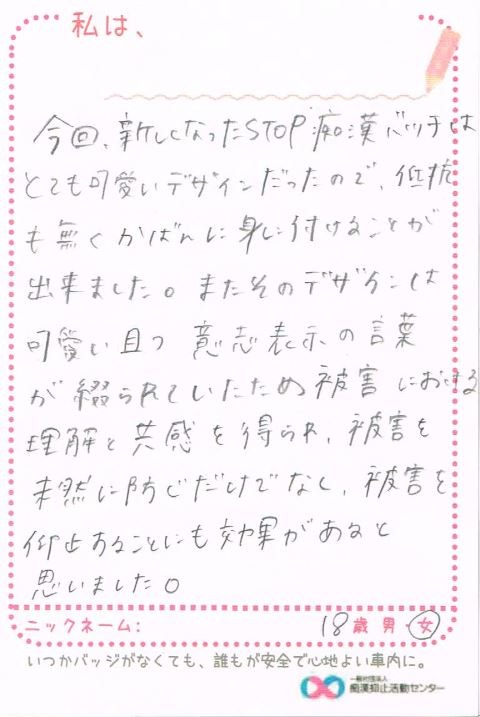 私は、
今回、新しくなったSTOP痴漢バッチは
とても可愛いデザインだったので、低抗
も無くかばんに身に付けることが
出来ました。またそのデザインは
可愛い且つ意志表示の言葉
が綴られていたため被害における
理解と共感を得られ、被害を
未然に防ぐだけでなく、被害を
仰止することにも効果があると
思いました。
ニックネーム: 18歳 男・女
いつかバッジがなくても、誰もが安全で心地よい車内に。
一般社団法人
痴漢抑止活動センター